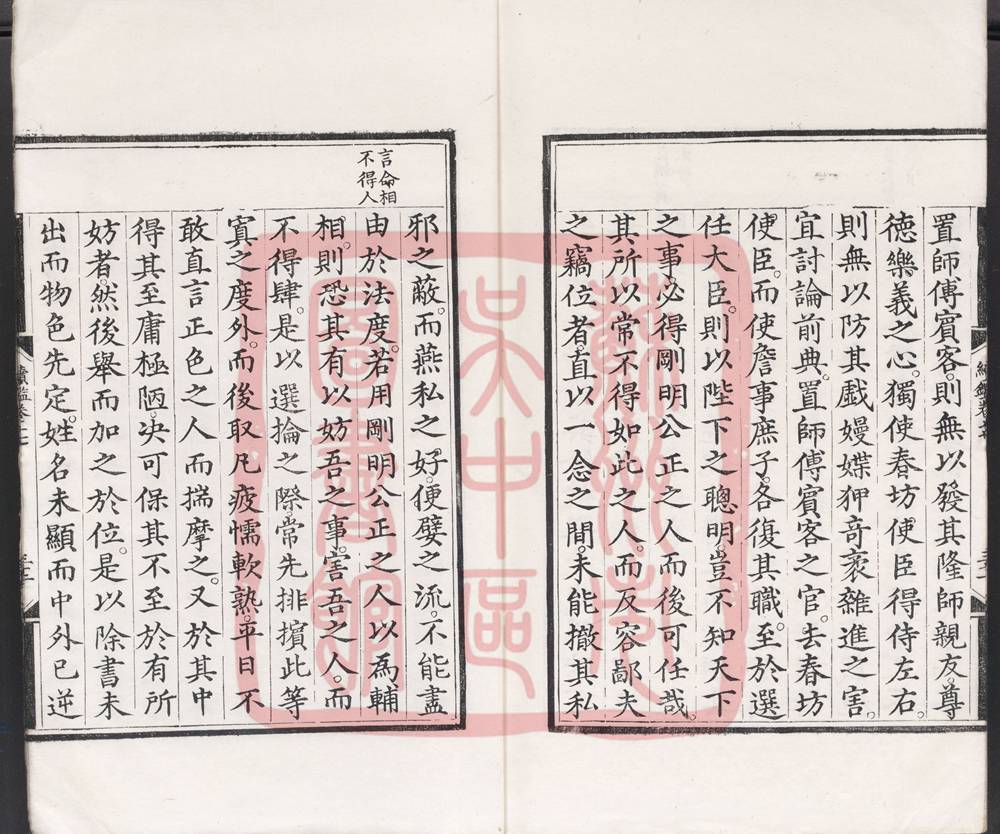 置師傅賓客則無以發其隆師親友。尊
德樂義之心。獨使春坊使臣得侍左右。
則無以防其戲嫚媟狎奇衺雜進之害。
宜討論前典。置師傅賓客之官。去春坊
使臣。而使詹事庶子。各復其職。至於選
任大臣。則以陛下之聰明。豈不知天下
之事必得剛明公正之人而後可任哉。
其所以常不得如此之人。而反容鄙夫
之竊位者。直以一念之間。未能撤其私
言命相
不得人
邪之蔽。而燕私之好。便嬖之流。不能盡
由於法度。若用剛明公正之人以為輔
相。則恐其有以妨吾之事。害吾之人。而
不得肆。是以選掄之際。常先排擯此等
寘之度外。而後取凡疲懦軟熟。平日不
敢直言正色之人而揣摩之。又於其中
得其至庸極陋。决可保其不至於有所
妨者。然後舉而加之於位。是以除書未
出而物色先定。姓名未顯而中外已逆
蘇州市
吳中區
圖書館